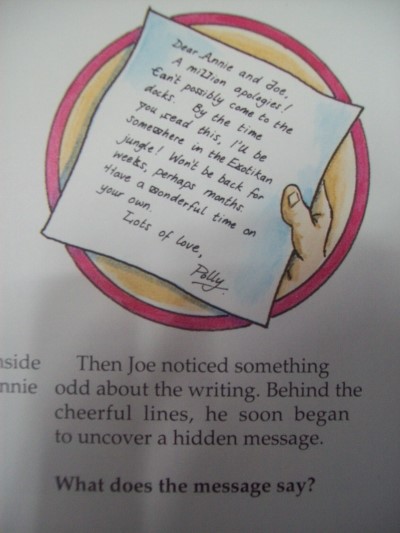 Dear Annie and Joe,
A million apologies!
Can't possibly come to the
docks. By the time
you read this, I'll be
somewhere in the Exotikan
jungle! Won't be back for
weeks, perhaps months.
Have a wonderful time on
your own.
Lots of love,
Polly.
nside
nnie
Then Joe noticed something
odd about the writing. Behind the
cheerful lines, he soon began
to uncover a hidden message.
What does the message say?